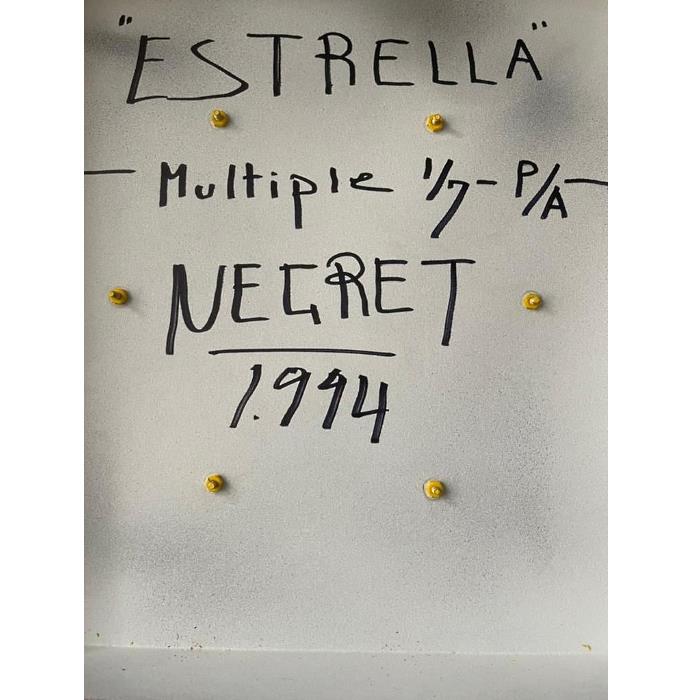 "ESTRELLA"
— Multiple 1/7 - P/A —
NEGRET
1.994